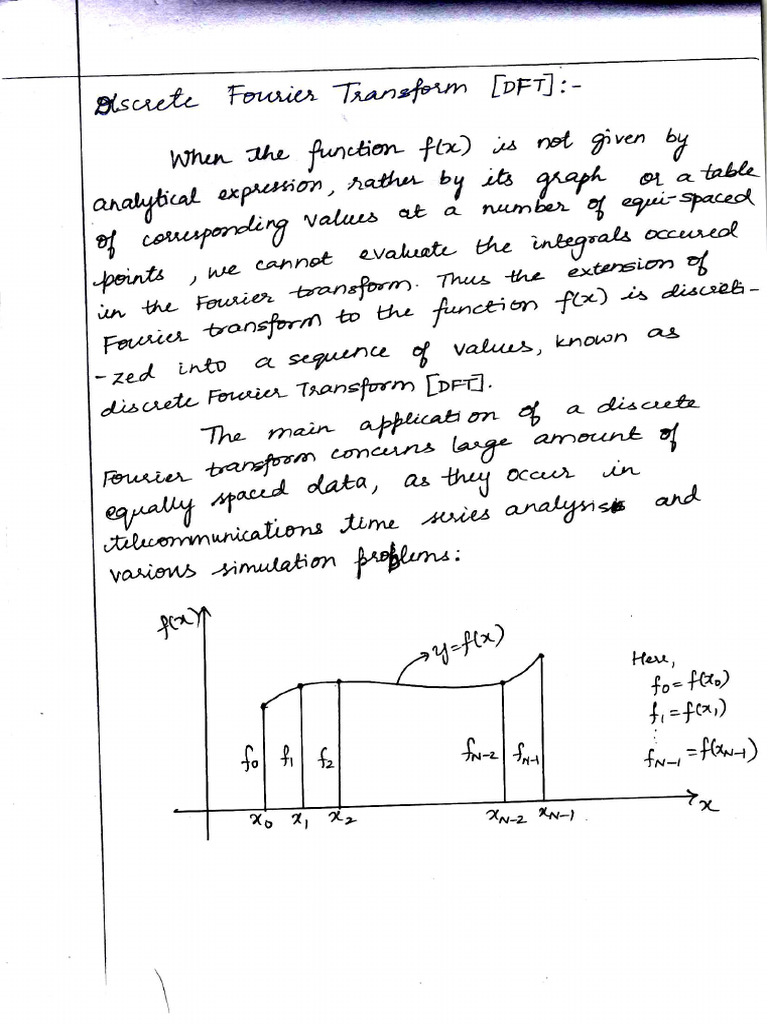 Discrete Fourier Transform [DFT]:-
When the function f(x) is not given by
analytical expression, rather by its graph or a table
of corresponding values at a number of equi-spaced
points, we cannot evaluate the integrals occured
in the Fourier transform. Thus the extension of
Fourier transform to the function f(x) is discreti-
-zed into a sequence of values, known as
discrete Fourier Transform [DFT].
The main application of a discrete
Fourier transform concerns large amount of
equally spaced data, as they occur in
telecommunications time series analysis and
various simulation problems:
f(x)
y=f(x)
Here,
f₀=f(x₀)
f₁=f(x₁)
⋮
f_{N-1}=f(x_{N-1})
f₀ f₁ f₂ f_{N-2} f_{N-1}
x₀ x₁ x₂ x_{N-2} x_{N-1} x